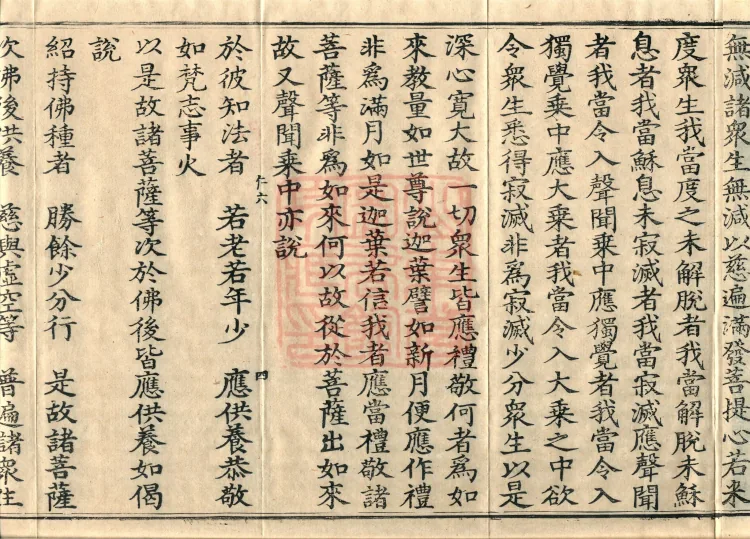 無減諸衆生無減以慈遍滿發菩提心若未
度衆生我當度之未解脫者我當解脫未穌
息者我當穌息未寂滅者我當寂滅應聲聞
者我當令入聲聞乘中應獨覺者我當令入
獨覺乘中應大乘者我當令入大乘之中欲
令衆生悉得寂滅非爲寂滅少分衆生以是
深心寬大故一切衆生皆應禮敬何者爲如
來教量如世尊說迦葉譬如新月便應作禮
非爲滿月如是迦葉若信我者應當禮敬諸
菩薩等非爲如來何以故從於菩薩出如來
故又聲聞乘中亦說
於彼知法者 若老若年少 應供養恭敬
如梵志事火
以是故諸菩薩等次於佛後皆應供養如偈
說
紹持佛種者 勝餘少分行 是故諸菩薩
次佛後供養 慈與虛空等 普遍諸衆生
四